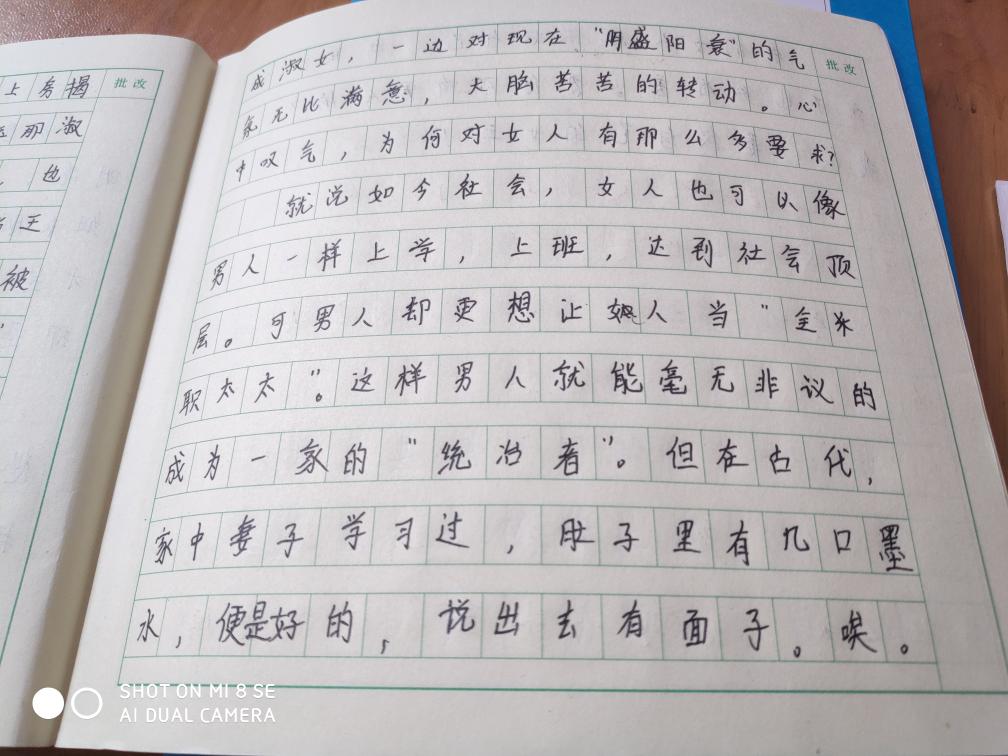 上房揭
那淑
也
王
被
批改
成淑女，一边对现在"阴盛阳衰"的气
氛无比满意，大脑苦苦的转动。心
中叹气，为何对女人有那么多要求？
就说如今社会，女人也可以像
男人一样上学，上班，达到社会顶
层。可男人却更想让女人当"全米
职太太"。这样男人就能毫无非议的
成为一家的"统治者"。但在古代，
家中妻子学习过，肚子里有几口墨
水，便是好的，说出去有面子。唉。
批改
SHOT ON MI 8 SE
AI DUAL CAMERA